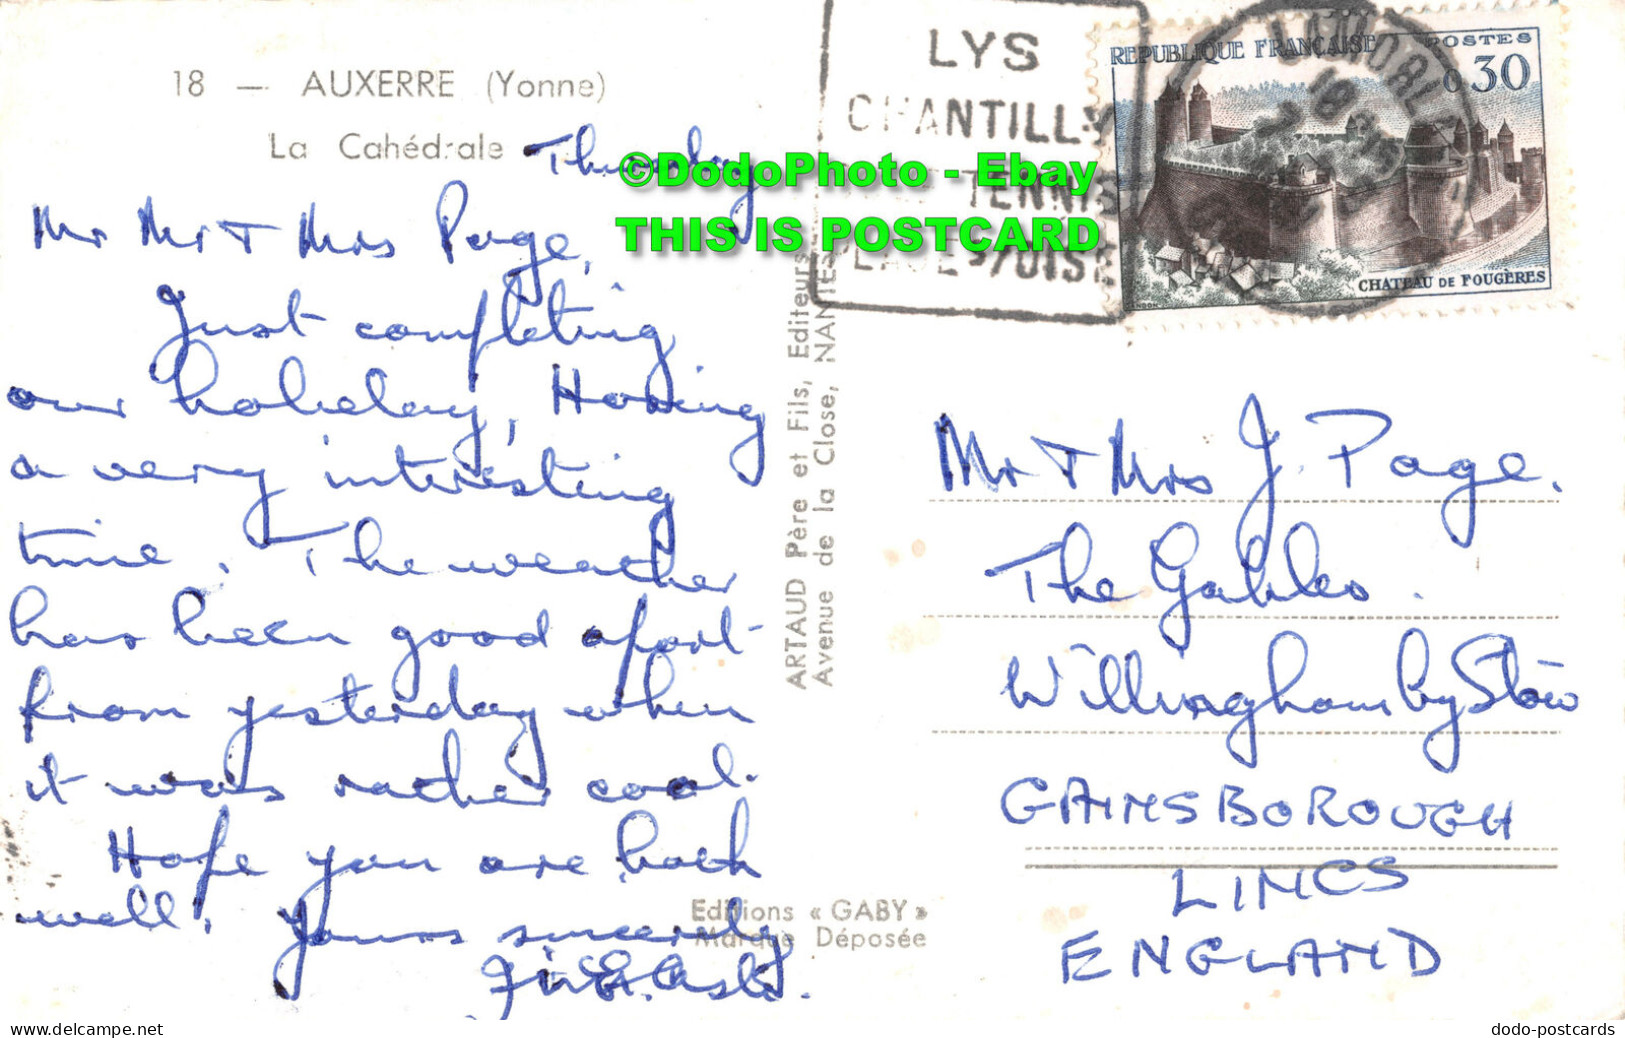 18 — AUXERRE (Yonne)
La Cahédrale
Thursday
Mr & Mrs Page,
Just completing
our holiday, Having
a very interesting
time. The weather
has been good apart
from yesterday when
it was rather cool.
Hope you are both
well. Yours sincerely
ARTAUD Père et Fils, Editeurs
Avenue de la Close, NANTES
Editions « GABY »
Marque Déposée
LYS
CHANTILLY
TENNIS
REPUBLIQUE FRANÇAISE POSTES
0,30
CHATEAU DE FOUGÈRES
©DodoPhoto - Ebay
THIS IS POSTCARD
Mr & Mrs J. Page.
The Gables.
Willingham by Stow
GAINSBOROUGH
LINCS
ENGLAND
Delcampe.net
dodo-postcards